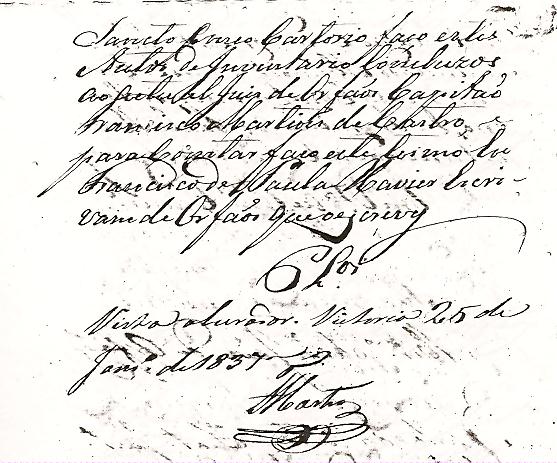 Sancto e meo Cartorio faço estes
Autos de Inventario Concluzos
ao actual Juiz de Orfaõs Capitaõ
Francisco Martins de Castro e
para Constar faço este termo Eu
Francisco de Paula Xavier Escri-
vam de Orfaõs que o escrevy
Clos.
Vista ao Curador. Victoria 25 de
Janr.º de 1837